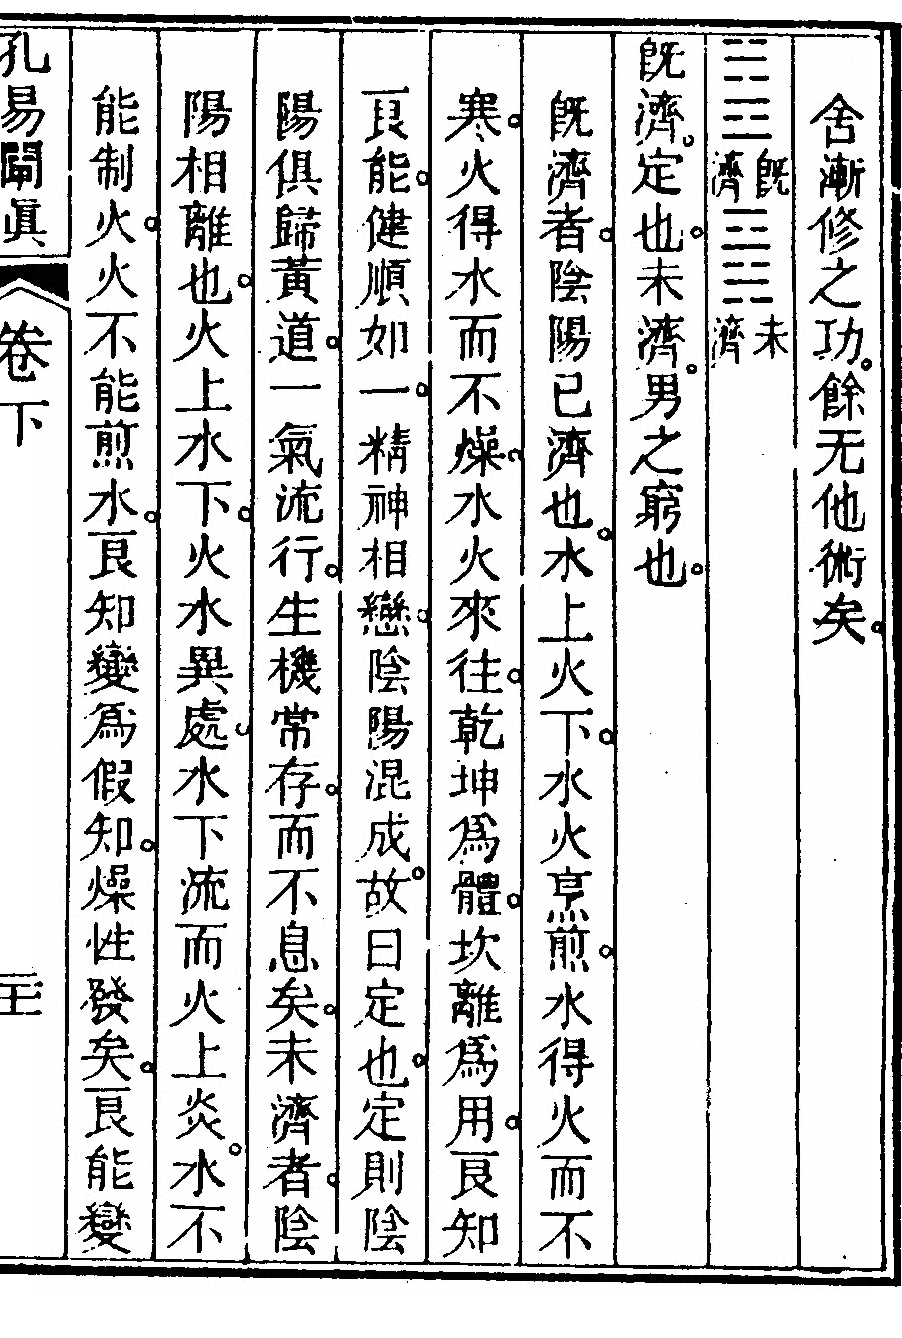 舍漸修之功。餘无他術矣。
䷾既濟䷿未濟
旣濟。定也。未濟。男之窮也。
旣濟者。陰陽已濟也。水上火下。水火烹煎。水得火而不
寒。火得水而不燥。水火來往。乾坤爲體。坎離爲用。良知
良能。健順如一。精神相戀。陰陽混成。故曰定也。定則陰
陽俱歸黃道。一氣流行。生機常存。而不息矣。未濟者。陰
陽相離也。火上水下。火水異處。水下流而火上炎。水不
能制火。火不能煎水。良知變爲假知。燥性發矣。良能變
孔易闡眞
卷下